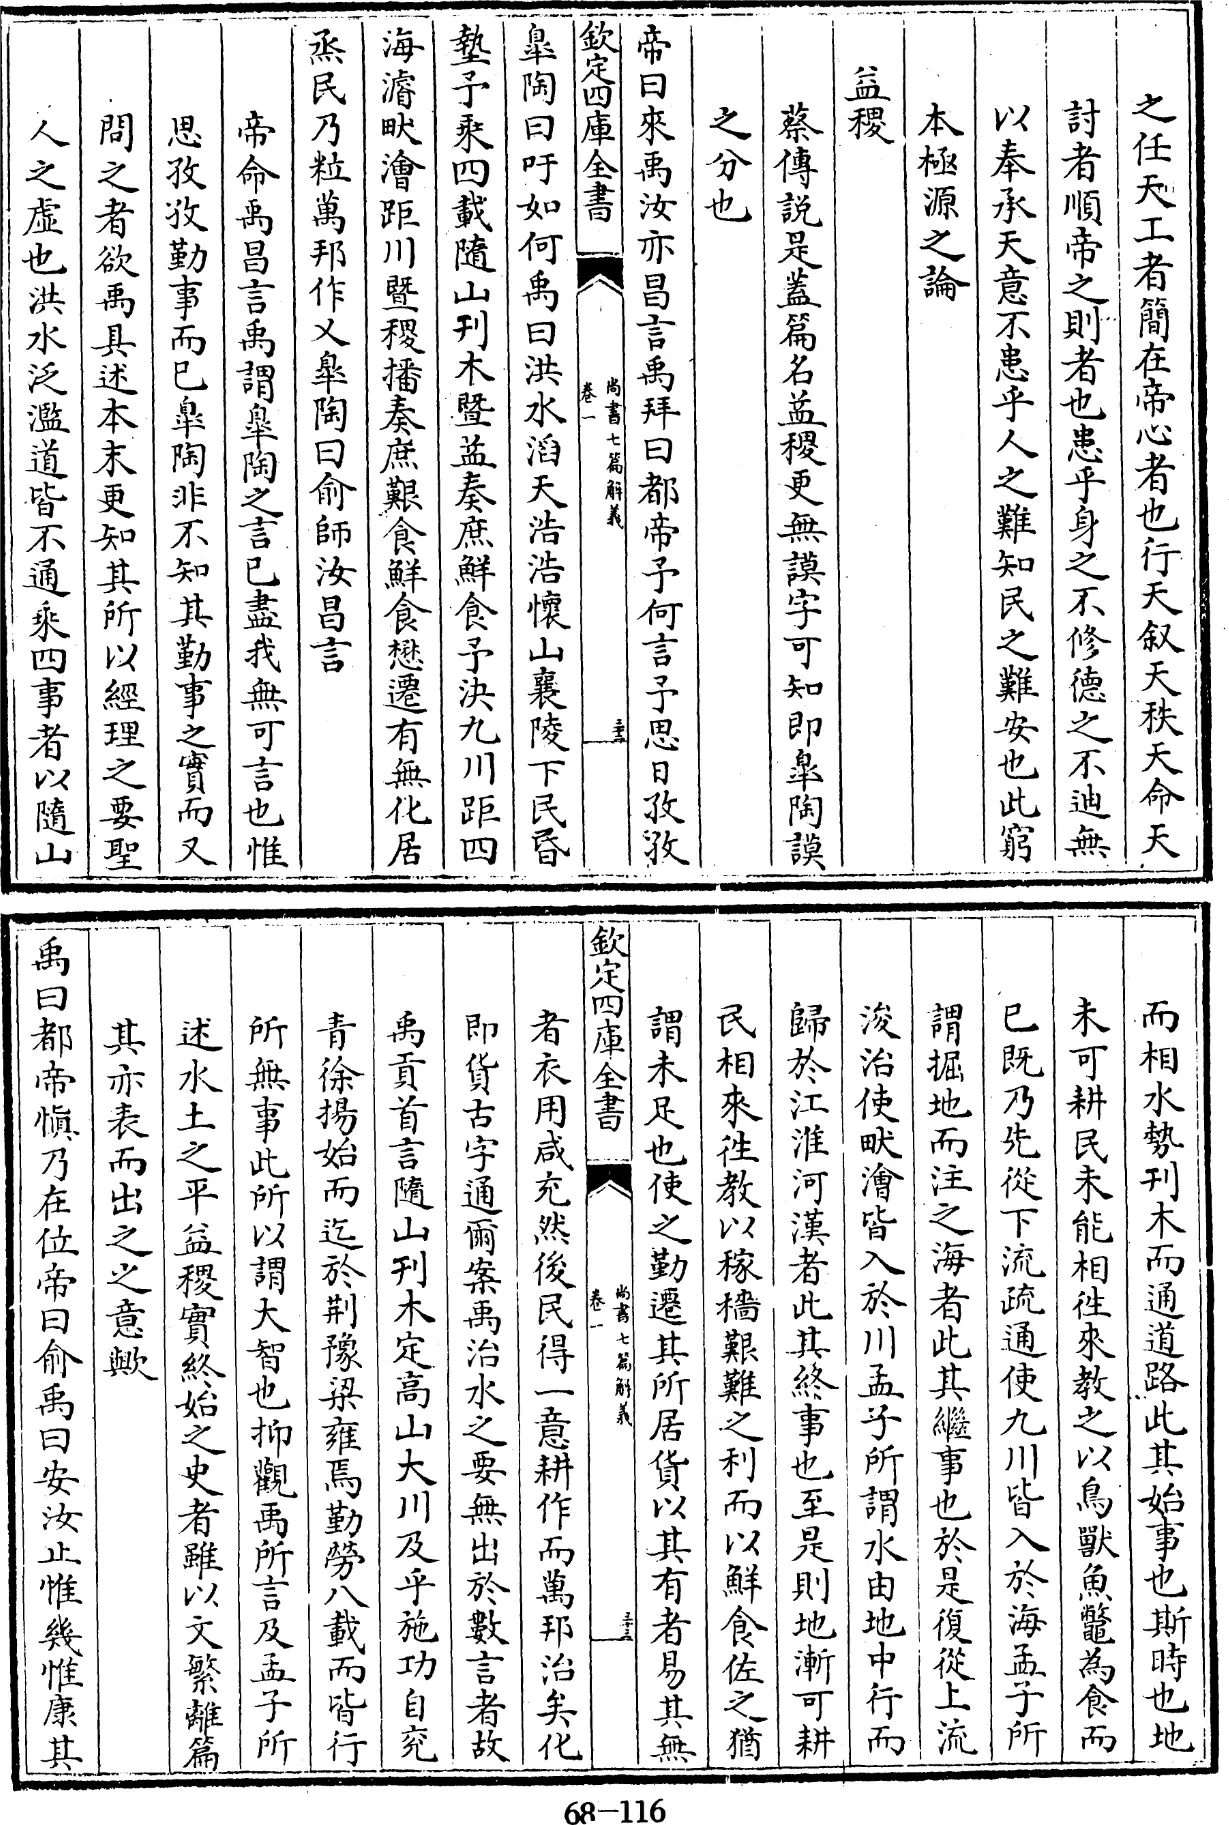 之任天工者簡在帝心者也行天叙天秩天命天
討者順帝之則者也患乎身之不修德之不迪無
以奉承天意不患乎人之難知民之難安也此窮
本極源之論
益稷
蔡傳説是蓋篇名益稷更無謨字可知即臯陶謨
之分也
帝曰來禹汝亦昌言禹拜曰都帝予何言予思日孜孜
欽定四庫全書
尚書七篇解義
卷一
三十二
臯陶曰吁如何禹曰洪水滔天浩浩懷山襄陵下民昏
墊予乘四載隨山刊木暨益奏庶鮮食予決九川距四
海濬畎澮距川暨稷播奏庶艱食鮮食懋遷有無化居
烝民乃粒萬邦作乂臯陶曰俞師汝昌言
帝命禹昌言禹謂臯陶之言已盡我無可言也惟
思孜孜勤事而已臯陶非不知其勤事之實而又
問之者欲禹具述本末更知其所以經理之要聖
人之虛也洪水泛濫道皆不通乘四事者以隨山
而相水勢刊木而通道路此其始事也斯時也地
未可耕民未能相徃來教之以鳥獸魚鼈為食而
已既乃先從下流疏通使九川皆入於海孟子所
謂掘地而注之海者此其繼事也於是復從上流
浚治使畎澮皆入於川孟子所謂水由地中行而
歸於江淮河漢者此其終事也至是則地漸可耕
民相來徃教以稼穡艱難之利而以鮮食佐之猶
謂未足也使之勤遷其所居貨以其有者易其無
欽定四庫全書
尚書七篇解義
卷一
三十三
者衣用咸充然後民得一意耕作而萬邦治矣化
即貨古字通爾案禹治水之要無出於數言者故
禹貢首言隨山刊木定高山大川及乎施功自兖
青徐揚始而迄於荆豫梁雍焉勤勞八載而皆行
所無事此所以謂大智也抑觀禹所言及孟子所
述水土之平益稷實終始之史者雖以文繁離篇
其亦表而出之之意歟
禹曰都帝慎乃在位帝曰俞禹曰安汝止惟幾惟康其
68-116